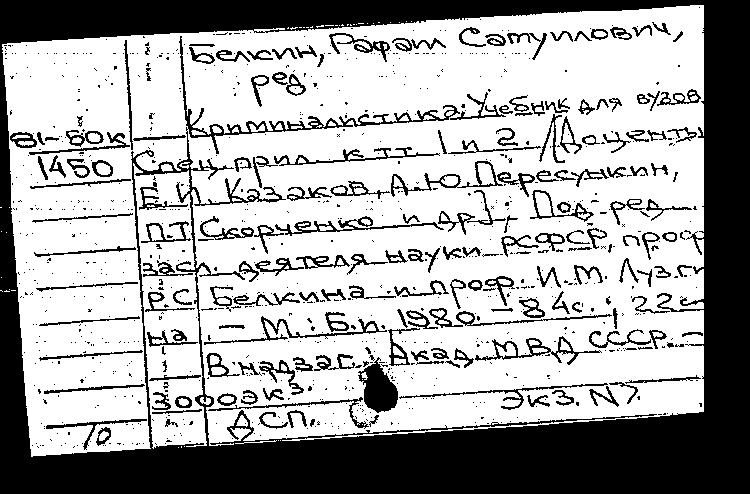 Белкин, Рафаил Самуилович,
ред.
Криминалистика: Учебник для вузов.
81-50к
1450 Спец. прил. к тт. 1 и 2. /[Доценты
Е.И. Казаков, А.Ю. Пересункин,
П.Т. Скорченко и др.]; Под ред.
засл. деятеля науки РСФСР, проф
Р.С. Белкина и проф. И.М. Лузги
на. — М.: Б.и. 1980. — 84с.; 22см
В надзаг.: Акад. МВД СССР. —
3000экз.
ДСП. Экз. N
10